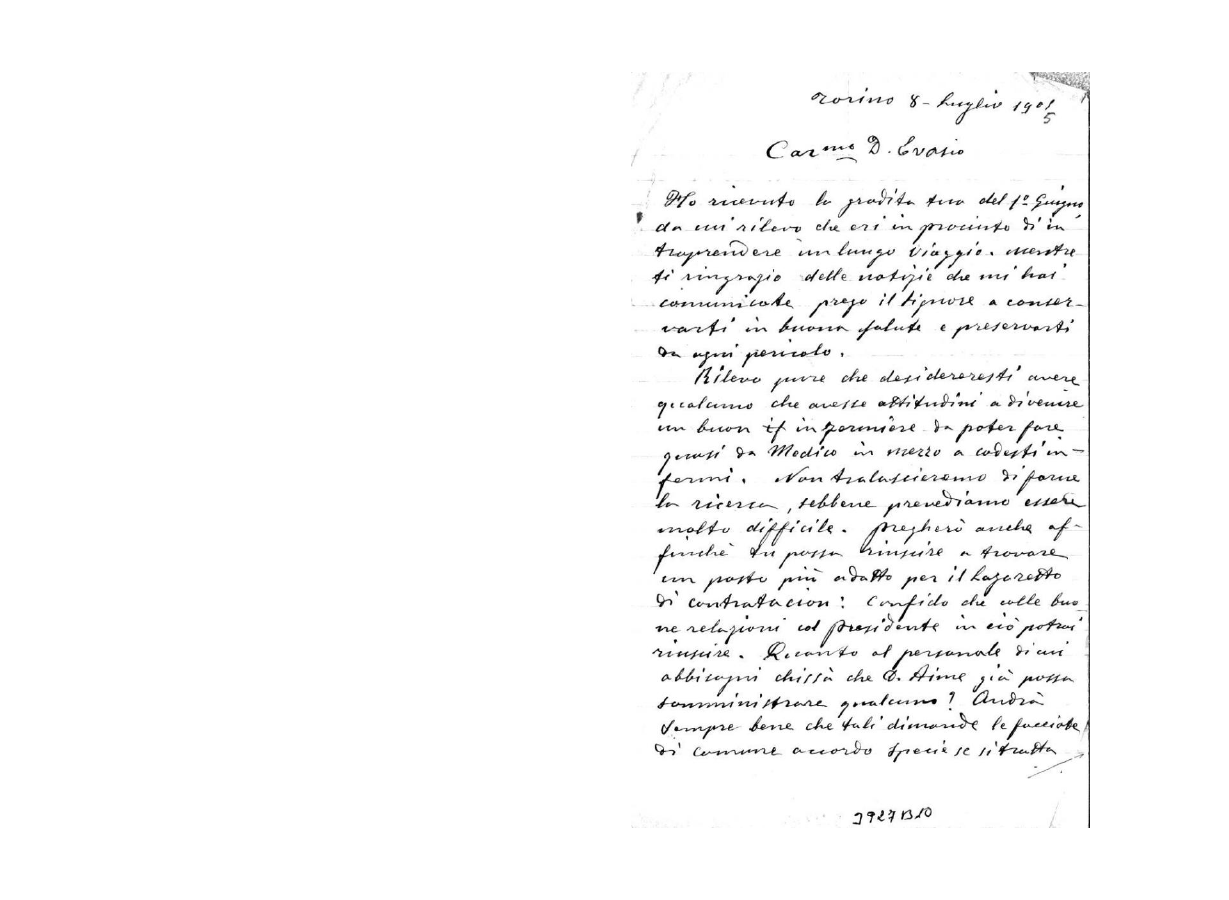 Torino 8 - Luglio 1905
Car.mo D. Evasio
Ho ricevuto la gradita tua del 1º Giugno
da cui rilevo che eri in procinto di in
traprendere un lungo viaggio. Mentre
ti ringrazio delle notizie che mi hai
comunicate prego il Signore a conser-
varti in buona salute e preservarti
da ogni pericolo.
Rilevo pure che desidereresti avere
qualcuno che avesse attitudini a divenire
un buon infermiere da poter fare
quasi da Medico in mezzo a codesti in-
fermi. Non tralascieremo di farne
la ricerca, sebbene prevediamo essere
molto difficile. Pregherò anche af-
finchè tu possa riuscire a trovare
un posto più adatto per il Lazaretto
di contratacion: Confido che colle buo
ne relazioni col Presidente in ciò potrai
riuscire. Quanto al personale di cui
abbisogni chissà che D. Aime già possa
somministrare qualcuno? Andrà
sempre bene che tali dimande le facciate
di comune accordo specie se si tratta
3927B10